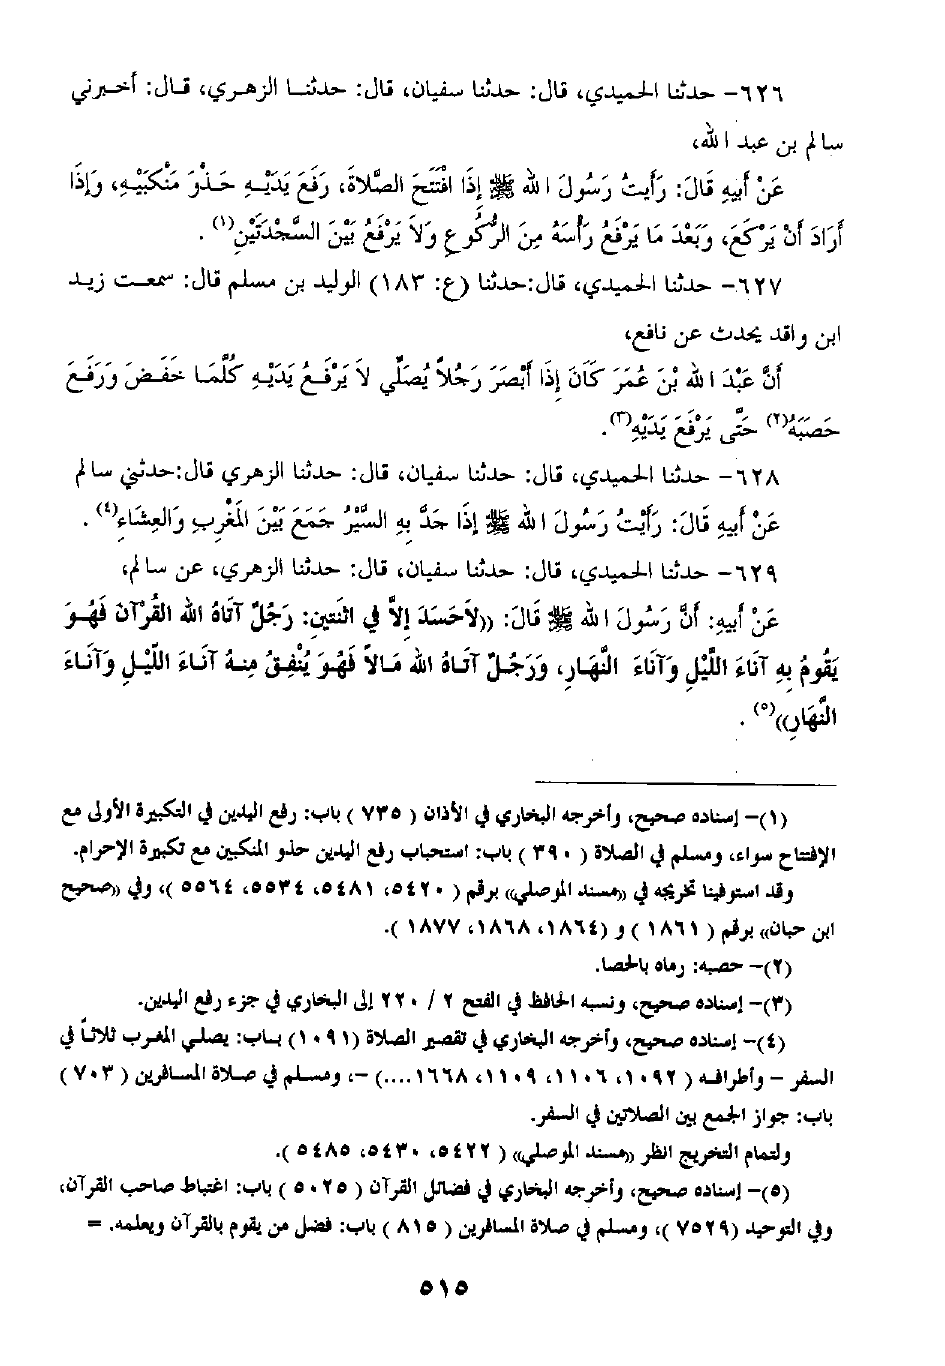 ٦٢٦- حدثنا الحميدي، قال: حدثنا سفيان، قال: حدثنا الزهري، قال: أخبرني
سالم بن عبد الله،
عَنْ أَبِيهِ قَالَ: رَأَيتُ رَسُولَ الله ﷺ إِذَا افْتَتَحَ الصَّلاَةَ، رَفَعَ يَدَيْهِ حَذْوَ مَنْكَبَيْهِ، وَإِذَا
أَرَادَ أَنْ يَرْكَعَ، وَبَعْدَ مَا يَرْفَعُ رَأْسَهُ مِنَ الرُّكُوعِ وَلاَ يَرْفَعُ بَيْنَ السَّجْدَتَيْنِ(١) .
٦٢٧- حدثنا الحميدي، قال:حدثنا (ع: ١٨٣) الوليد بن مسلم قال: سمعت زيد
ابن واقد يحدث عن نافع،
أَنَّ عَبْدَ الله بْنَ عُمَرَ كَانَ إِذَا أَبْصَرَ رَجُلاً يُصَلِّي لاَ يَرْفَعُ يَدَيْهِ كُلَّمَا خَفَضَ وَرَفَعَ
حَصَبَهُ(٢) حَتَّى يَرْفَعَ يَدَيْهِ(٣).
٦٢٨- حدثنا الحميدي، قال: حدثنا سفيان، قال: حدثنا الزهري قال:حدثني سالم
عَنْ أَبِيهِ قَالَ: رَأَيْتُ رَسُولَ الله ﷺ إِذَا جَدَّ بِهِ السَّيْرُ جَمَعَ بَيْنَ الْمَغْرِبِ وَالعِشَاءِ(٤) .
٦٢٩- حدثنا الحميدي، قال: حدثنا سفيان، قال: حدثنا الزهري، عن سالم،
عَنْ أَبِيهِ: أَنَّ رَسُولَ الله ﷺ قَالَ: ((لاَحَسَدَ إِلاَّ فِي اثْنَتَينِ: رَجُلٌ آتَاهُ الله القُرْآنَ فَهُوَ
يَقُومُ بِهِ آنَاءَ اللَّيْلِ وَآنَاءَ النَّهَارِ، وَرَجُلٌ آتَاهُ الله مَالاً فَهُوَ يُنْفِقُ مِنهُ آنَاءَ اللَّيْلِ وَآنَاءَ
النَّهَارِ))(٥) .
(١)- إسناده صحيح، وأخرجه البخاري في الأذان ( ٧٣٥ ) باب: رفع اليدين في التكبيرة الأولى مع
الإفتتاح سواء، ومسلم في الصلاة ( ٣٩٠ ) باب: استحباب رفع اليدين حذو المنكبين مع تكبيرة الإحرام.
وقد استوفينا تخريجه في ((مسند الموصلي)) برقم ( ٥٤٢٠، ٥٤٨١، ٥٥٣٤، ٥٥٦٤ )، وفي ((صحيح
ابن حبان)) برقم ( ١٨٦١ ) و (١٨٦٤، ١٨٦٨، ١٨٧٧ ).
(٢)- حصبه: رماه بالحصا.
(٣)- إسناده صحيح، ونسبه الحافظ في الفتح ٢ / ٢٢٠ إلى البخاري في جزء رفع اليدين.
(٤)- إسناده صحيح، وأخرجه البخاري في تقصير الصلاة (١٠٩١) باب: يصلي المغرب ثلاثاً في
السفر - وأطرافه ( ١٠٩٢، ١١٠٦، ١١٠٩، ١٦٦٨....) -، ومسلم في صلاة المسافرين ( ٧٠٣ )
باب: جواز الجمع بين الصلاتين في السفر.
ولتمام التخريج انظر ((مسند الموصلي)) ( ٥٤٢٢، ٥٤٣٠، ٥٤٨٥ ).
(٥)- إسناده صحيح، وأخرجه البخاري في فضائل القرآن ( ٥٠٢٥ ) باب: اغتباط صاحب القرآن،
وفي التوحيد (٧٥٢٩ )، ومسلم في صلاة المسافرين ( ٨١٥ ) باب: فضل من يقوم بالقرآن ويعلمه. =
٥١٥